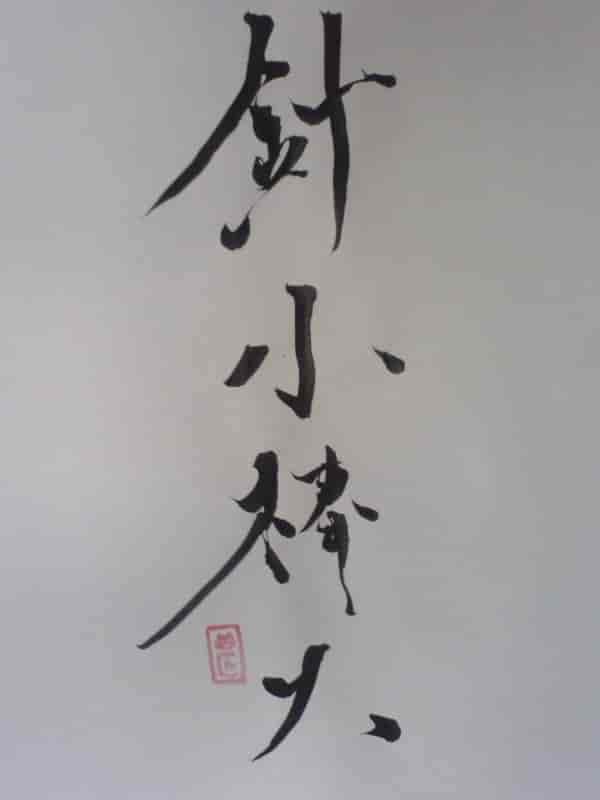 針小棒大